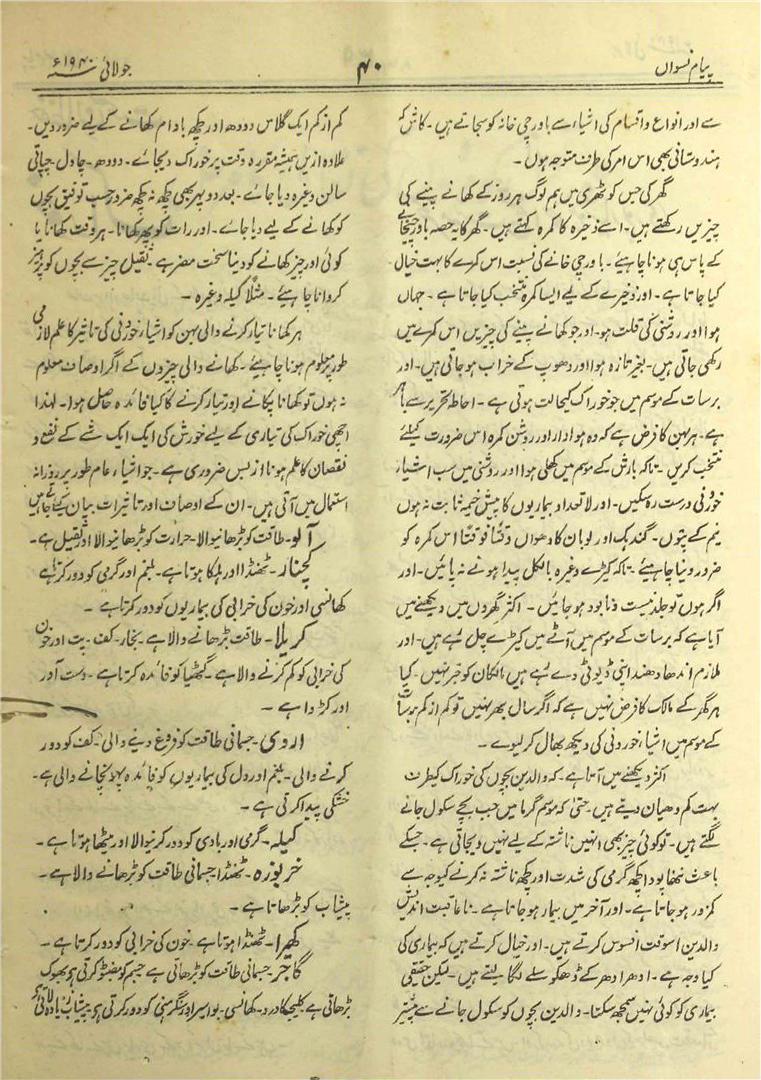 پیام نسواں
۴۰
جولائی سنہ ۱۹۴۰ء
سے اور انواع و اقسام کی اشیاء سے باورچی خانہ کو سجاتے ہیں۔ کاش کہ
ہندوستانی بھی اس امر کی طرف متوجہ ہوں۔
گھر کی جس کوٹھری میں ہم لوگ ہر روز کے کھانے پینے کی
چیزیں رکھتے ہیں۔ اسے ذخیرہ کا کمرہ کہتے ہیں۔ گھر کا یہ حصہ باورچیخانے
کے پاس ہی ہونا چاہیئے۔ باورچی خانے کی نسبت اس کمرے کا بہت خیال
کیا جاتا ہے۔ اور ذخیرے کے لیے ایسا کمرہ منتخب کیا جاتا ہے۔ جہاں
ہوا اور روشنی کی قلت ہو۔ اور جو کھانے پینے کی چیزیں اس کمرے میں
رکھی جاتی ہیں۔ بغیر تازہ ہوا اور دھوپ کے خراب ہو جاتی ہیں۔ اور
برسات کے موسم میں جو خوراک کیحالت ہوتی ہے۔ احاطہ تحریر سے باہر
ہے۔ ہر بہن کا فرض ہے کہ وہ ہوادار اور روشن کمرہ اس ضرورت کیلئے
منتخب کریں۔ تاکہ بارش کے موسم میں کھلی ہوا اور روشنی میں سب اشیار
خوردنی درست رہ سکیں۔ اور لا تعداد بیماریوں کا پیش خیمہ ثابت نہ ہوں
نیم کے پتوں۔ گندہک اور لوبان کا دھواں وقتاً فوقتاً اس کمرہ کو
ضرور دینا چاہیئے۔ تاکہ کیڑے وغیرہ بالکل پیدا ہونے نہ پائیں۔ اور
اگر ہوں تو جلد نیست و نابود ہو جائیں۔ اکثر گھروں میں دیکھنے میں
آیا ہے کہ برسات کے موسم میں آٹے میں کیڑے چل رہے ہیں۔ اور
ملازم اندھا دھند اپنی ڈیوٹی دے رہے ہیں مالکان کو خبر نہیں۔ کیا
ہر گھر کے مالک کا فرض نہیں ہے کہ اگر سال بھر نہیں تو کم از کم برسات
کے موسم میں اشیاء خوردنی کی دیکھ بھال کر لیوے۔
اکثر دیکھنے میں آتا ہے۔ کہ والدین بچوں کی خوراک کیطرف
بہت کم دھیان دیتے ہیں۔ حتیٰ کہ موسم گرما میں جب بچے سکول جانے
لگتے ہیں۔ تو کوئی چیز بھی انہیں ناشتہ کے لیے نہیں دیجاتی ہے۔ جسکے
باعث ننھا پودا کچھ گرمی کی شدت اور کچھ ناشتہ نہ کرنے کیوجہ سے
کمزور ہو جاتا ہے۔ اور آخر میں بیمار ہو جاتا ہے۔ نا عاقبت اندیش
والدین اسوقت افسوس کرتے ہیں۔ اور خیال کرتے ہیں کہ بیماری کی
کیا وجہ ہے۔ ادھر ادھر کے ڈھکوسلے لگا لیتے ہیں۔ لیکن حقیقی
بیماری کو کوئی نہیں سمجھ سکتا۔ والدین بچوں کو سکول جانے سے پیشتر
کم از کم ایک گلاس دودھ اور کچھ بادام کھانے کے لیے ضرور دیں۔
علاوہ ازیں ہمیشہ مقررہ وقت پر خوراک دیجائے۔ دودھ۔ چاول۔ چپاتی
سالن وغیرہ دیا جائے۔ بعد دوپہر بھی کچھ نہ کچھ ضرور حسب توفیق بچوں
کو کھانے کے لیے دیا جائے۔ اور رات کو پھر کھانا۔ ہر وقت کھانا یا
کوئی اور چیز کھانے کو دینا سخت مضر ہے۔ ثقیل چیز سے بچوں کو پرہیز
کروانا چاہیئے۔ مثلاً کیلہ وغیرہ۔
ہر کھانا تیار کرنے والی بہن کو اشیار خوردنی کی تاثیر کا علم لازمی
طور پر معلوم ہونا چاہیئے۔ کھانے والی چیزوں کے اگر اوصاف معلوم
نہ ہوں تو کھانا پکانے اور تیار کرنے کا کیا فائدہ حاصل ہوا۔ لہٰذا
اچھی خوراک کی تیاری کے لیے خورش کی ایک ایک شے کے نفع و
نقصان کا علم ہونا ازبس ضروری ہے۔ جو اشیاء عام طور پر روزانہ
استعمال میں آتی ہیں۔ ان کے اوصاف اور تاثیرات بیان کیے جاتے ہیں
آلو۔ طاقت کو بڑھانیوالا۔ حرارت کو بڑھانیوالا اور ثقیل ہے۔
کچنار۔ ٹھنڈا اور ہلکا ہوتا ہے۔ بلغم اور گرمی کو دور کرتا ہے
کھانسی اور خون کی خرابی کی بیماریوں کو دور کرتا ہے۔
کریلا۔ طاقت بڑھانے والا ہے۔ بخار۔ کف۔ پت اور خون
کی خرابی کو کم کرنے والا ہے۔ گنٹھیا کو فائدہ کرتا ہے۔ دست آور
اور کڑوا ہے۔
اروی۔ جسمانی طاقت کو فروغ دینے والی۔ کف کو دور
کرنے والی۔ بلغم اور دل کی بیماریوں کو فائدہ پہونچانے والی ہے۔
خشکی پیدا کرتی ہے۔
کیلہ۔ گرمی اور بادی کو دور کرنیوالا اور میٹھا ہوتا ہے۔
خربوزہ۔ ٹھنڈا جسمانی طاقت کو بڑھانے والا ہے۔
پیشاب کو بڑھاتا ہے۔
کھیرا۔ ٹھنڈا ہوتا ہے۔ خون کی خرابی کو دور کرتا ہے۔
گاجر۔ جسمانی طاقت کو بڑھاتی ہے جسم کو مضبوط کرتی ہے بھوک
بڑھاتی ہے کلیجکا درد۔ کھانسی۔ بواسیر اور سنگرہنی کو دور کرتی ہے پیشاب زیادہ لاتی ہے